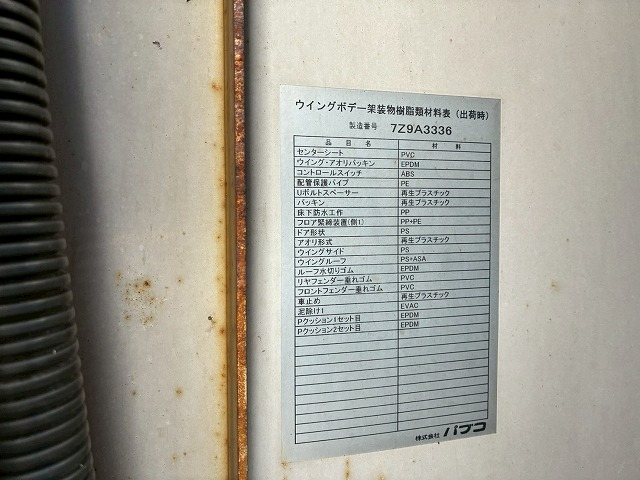 ウイングボデー架装物樹脂類材料表（出荷時）
製造番号 7Z9A3336
品目名 材料
センターシート PVC
ウイング・アオリパッキン EPDM
コントロールスイッチ ABS
配管保護パイプ PE
Uボルトスペーサー 再生プラスチック
パッキン 再生プラスチック
床下防水工作 PP
フロア緊締装置(側1) PP+PE
ドア形状 PS
アオリ形式 再生プラスチック
ウイングサイド PS
ウイングルーフ PS+ASA
ルーフ水切りゴム EPDM
リヤフェンダー垂れゴム PVC
フロントフェンダー垂れゴム PVC
車止め 再生プラスチック
泥除け1 EVAC
Pクッション1セット目 EPDM
Pクッション2セット目 EPDM
株式会社 パブコ